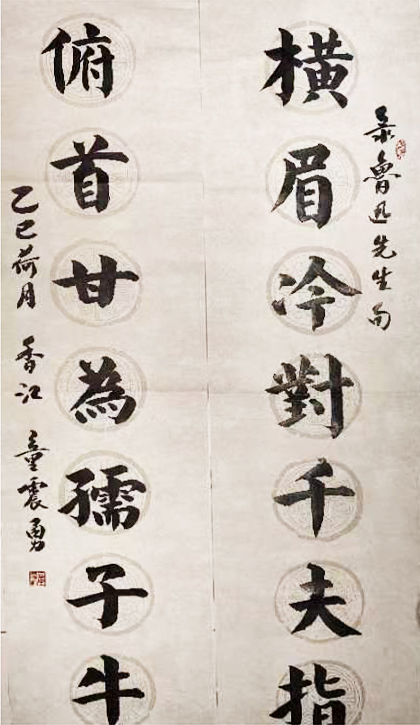 录鲁迅先生句
横眉冷對千夫指
俯首甘為孺子牛
乙巳荷月 香江 童震勇